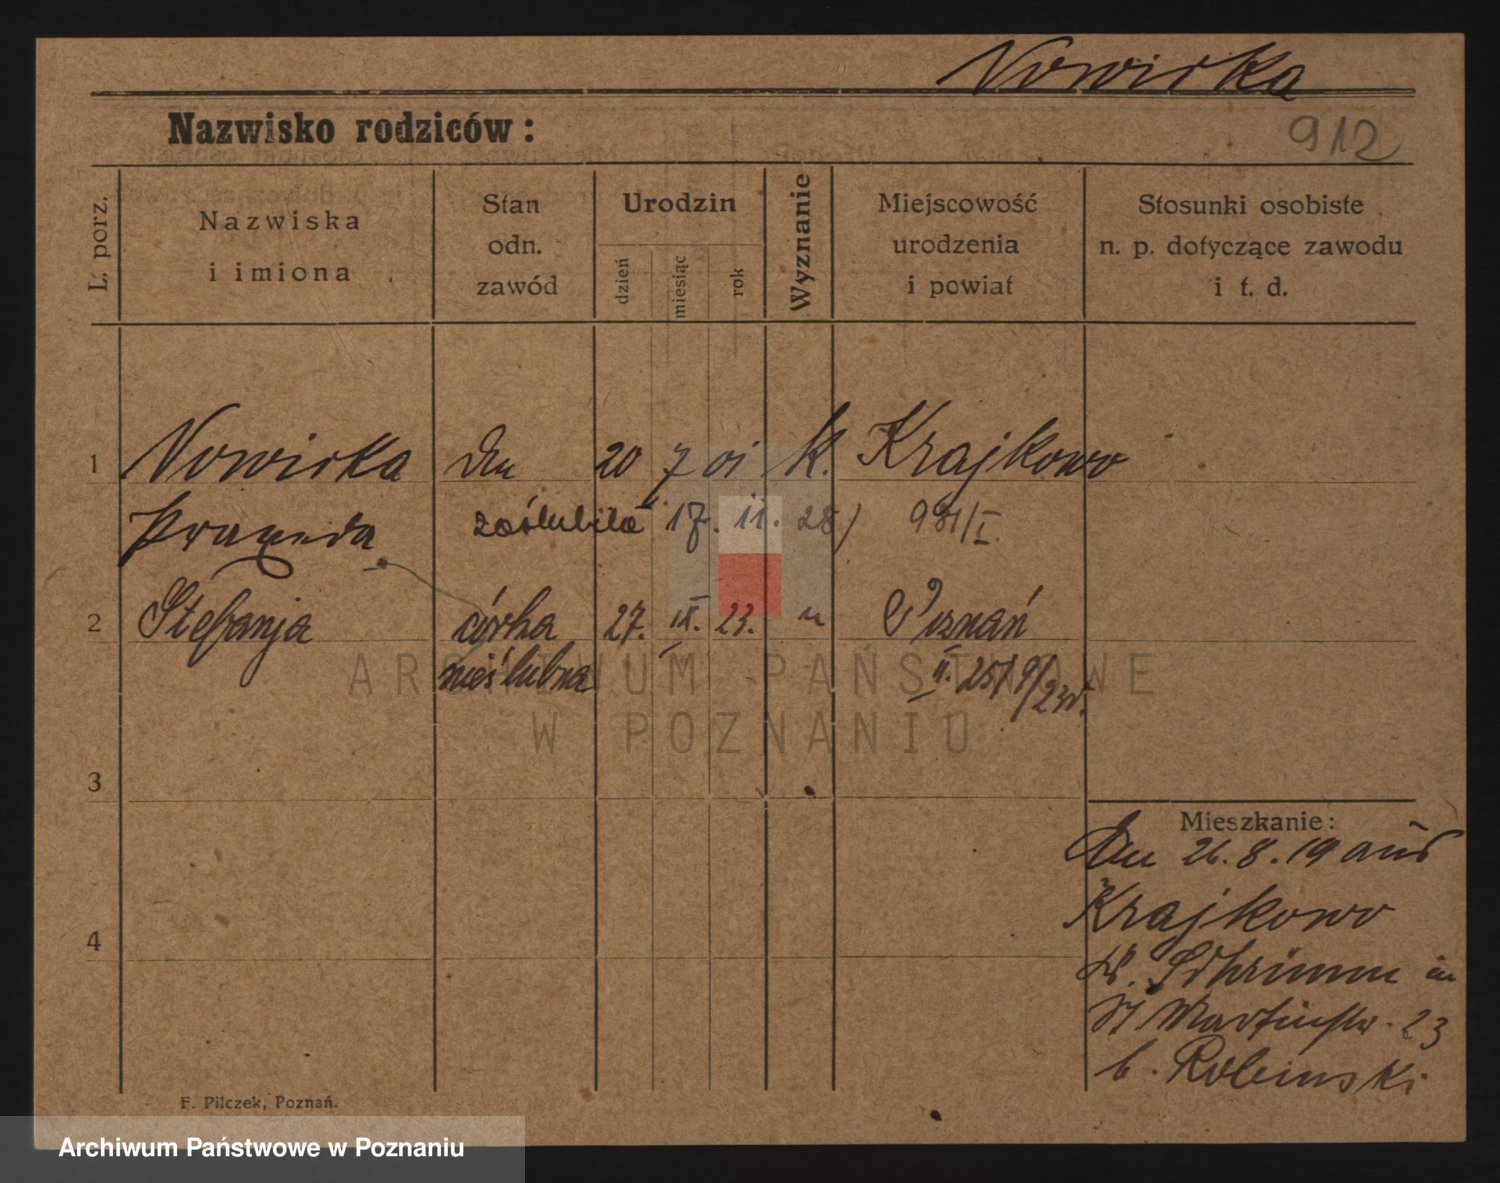 Nowicka
Nazwisko rodziców:
912
L. porz.
Nazwiska
i imiona
Stan
odn.
zawód
Urodzin
dzień
miesiąc
rok
Wyznanie
Miejscowość
urodzenia
i powiat
Stosunki osobiste
n. p. dotyczące zawodu
i t. d.
1 Nowicka 20 7 01 k. Krajkowo
Praxeda zaślubiła 17. 11. 28)
2 Stefanja córka 27. IX. 23. " Poznań
nieślubna
3
4
Mieszkanie:
26.8.19 aus
Krajkowo
Kr. Schrimm in
St Martinstr. 23
b. Robinski
F. Pilczek, Poznań.
ARCHIWUM PAŃSTWOWE
W POZNANIU
Archiwum Państwowe w Poznaniu